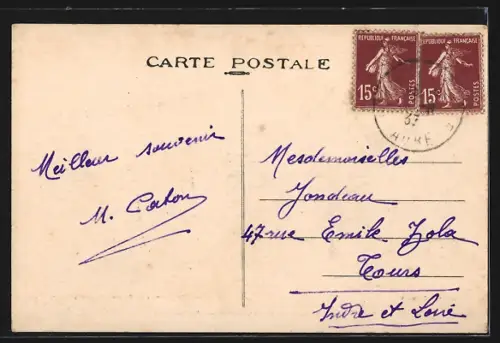 CARTE POSTALE
REPUBLIQUE FRANÇAISE
15c
POSTES
REPUBLIQUE FRANÇAISE
15c
POSTES
37
AUBE
Meilleur souvenir
M.
Mesdemoiselles
Jondeau
47 rue Emile Zola
Tours
Indre et Loire